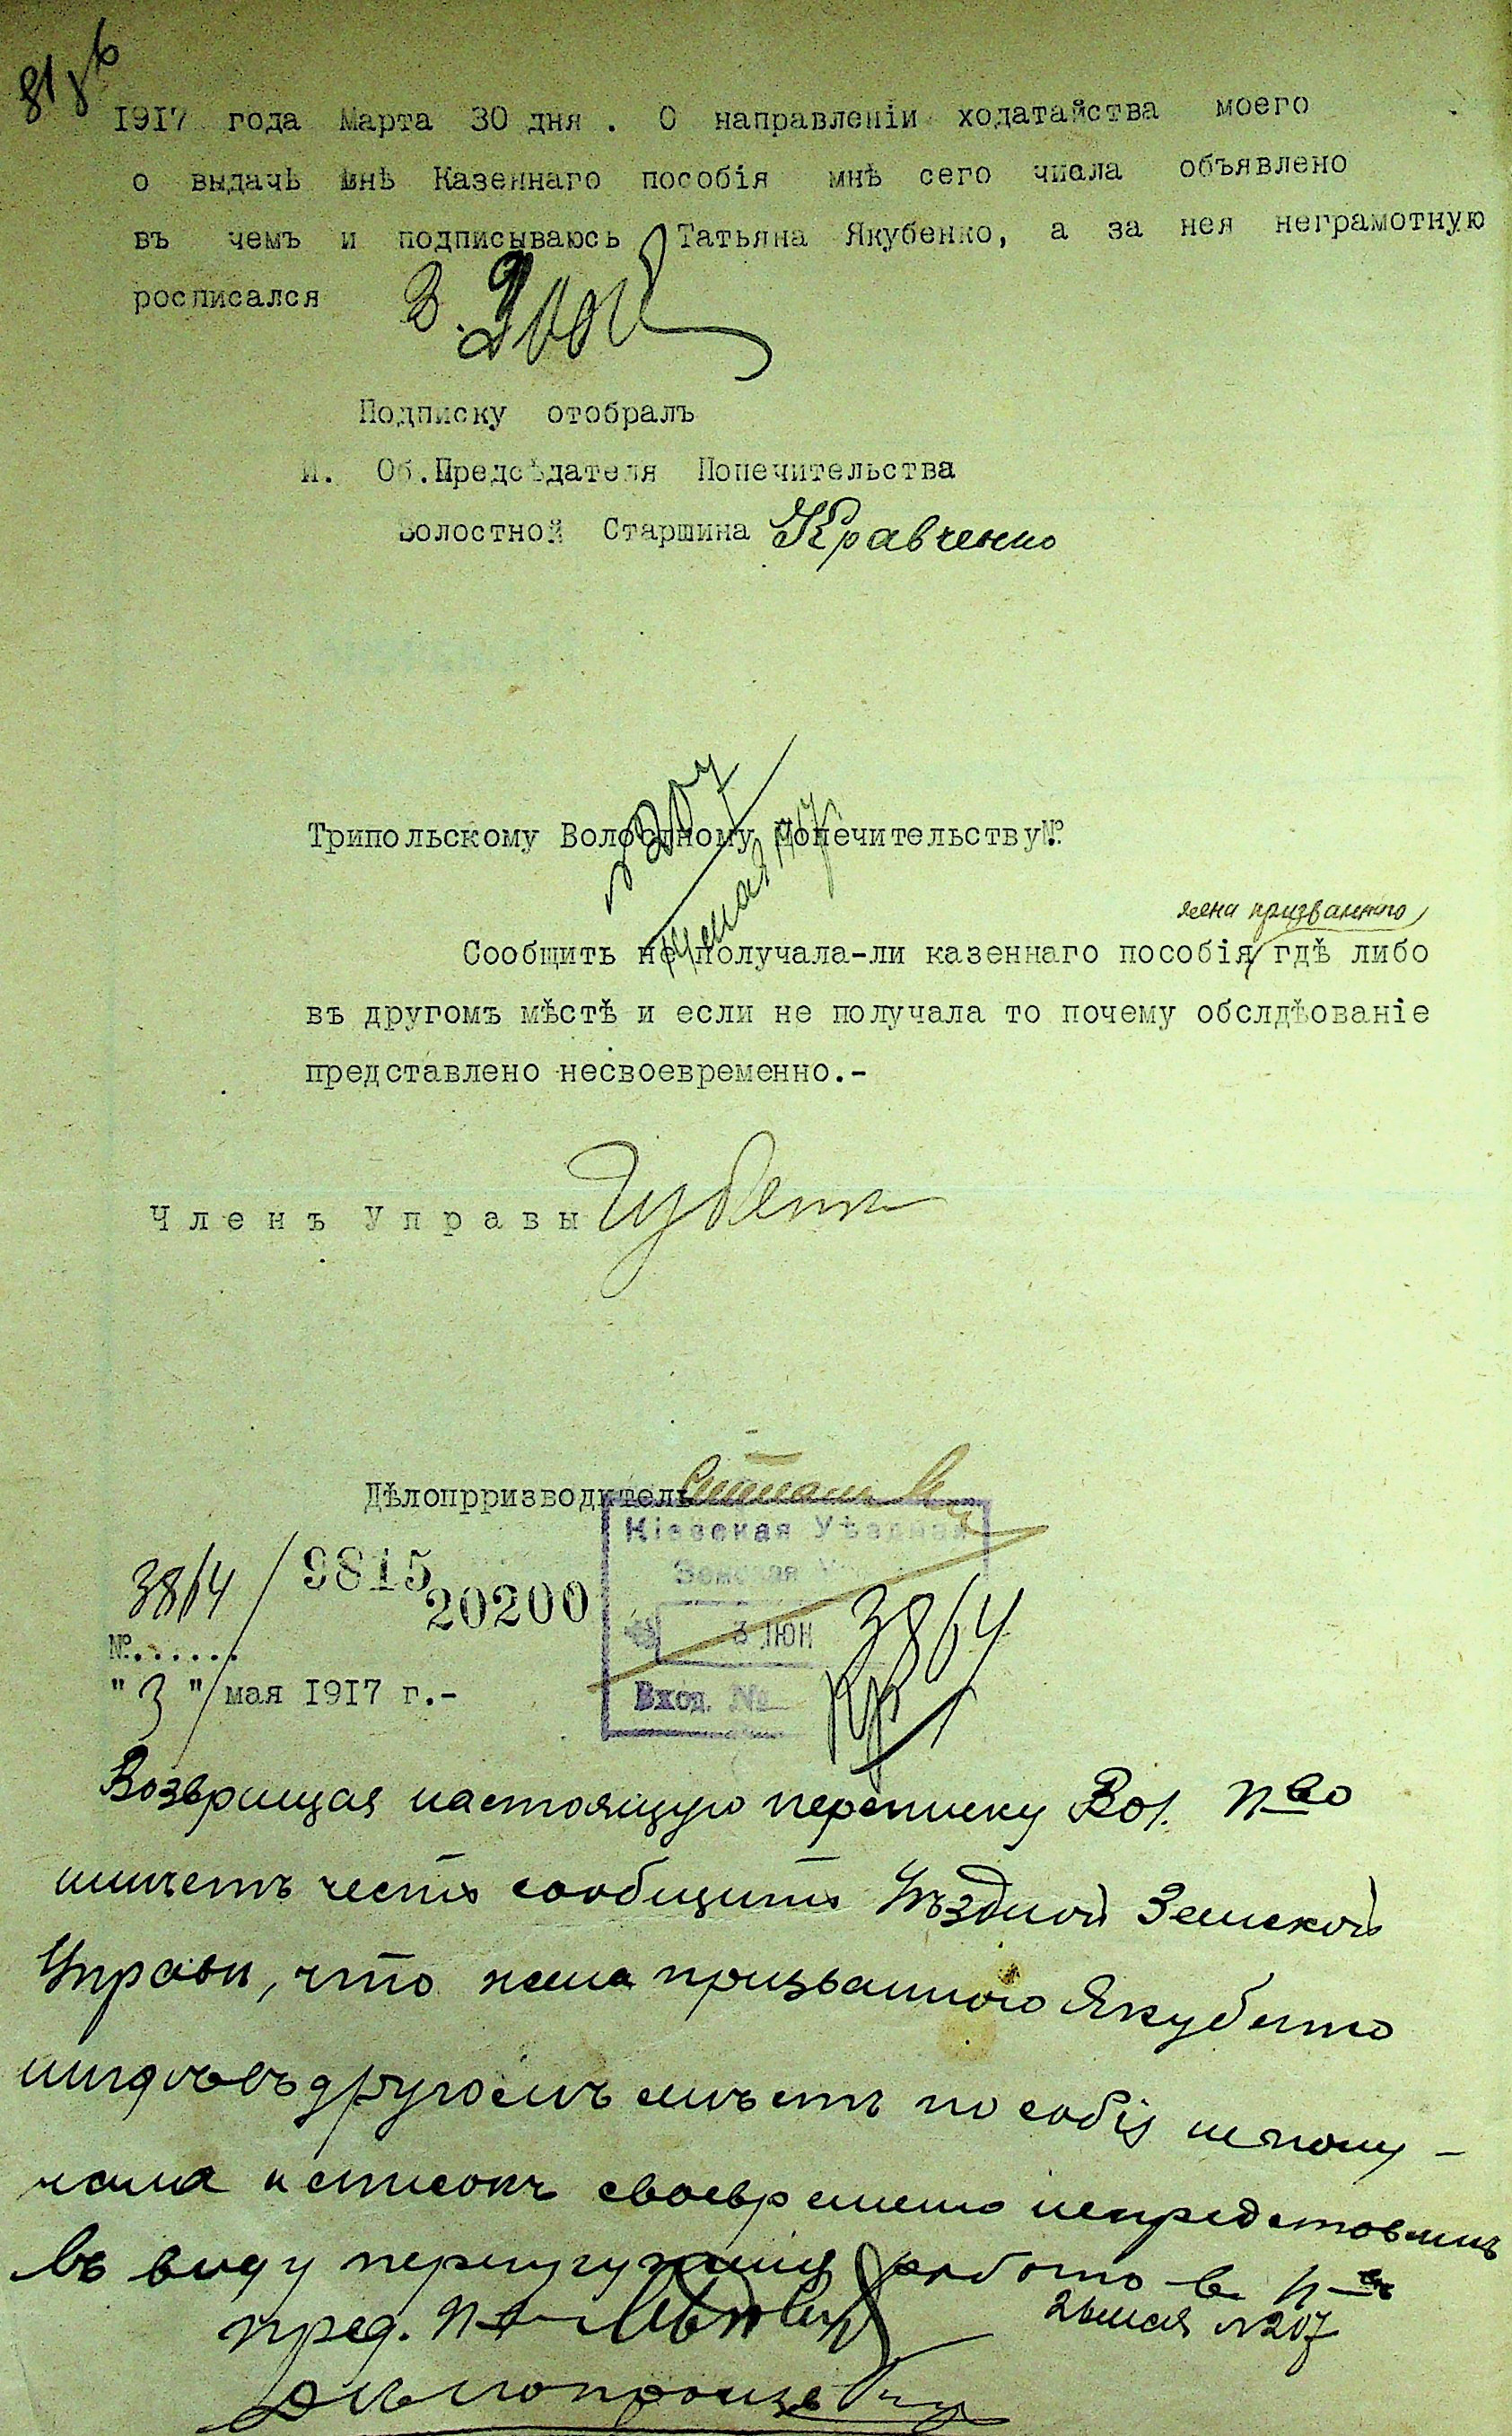 1917 года Марта 30 дня . О направленіи ходатайства моего
о выдачѣ мнѣ Казеннаго пособія мнѣ сего числа объявлено
въ чемъ и подписываюсь Татьяна Якубенко, а за нея неграмотную
росписался
Подписку отобралъ
И. Об.Предсѣдателя Попечительства
Волостной Старшина Кравченко
№ 207
Трипольскому Волостному Попечительству№
жена призваннаго
Сообщить не получала-ли казеннаго пособія где либо
въ другомъ мѣстѣ и если не получала то почему обслдѣованіе
представлено несвоевременно.-
Членъ Управы
Дѣлопрризводитель
Кіевская Уѣздная
Земская
3864 9815
20200
3 ІЮН
3864
№......
Вход. №
"3" мая 1917 г.-
Возвращая настоящую переписку Вол. П-во
имѣетъ честь сообщить Уѣздной Земской
Управы, что жена призванного Якубенко
нигде въ другомъ мѣстѣ пособія не полу-
чала и списокъ своевременно непредставленъ
въ виду перегруженія работою в П-вѣ
Пред. П-ва
26 мая №207
Делопроизв